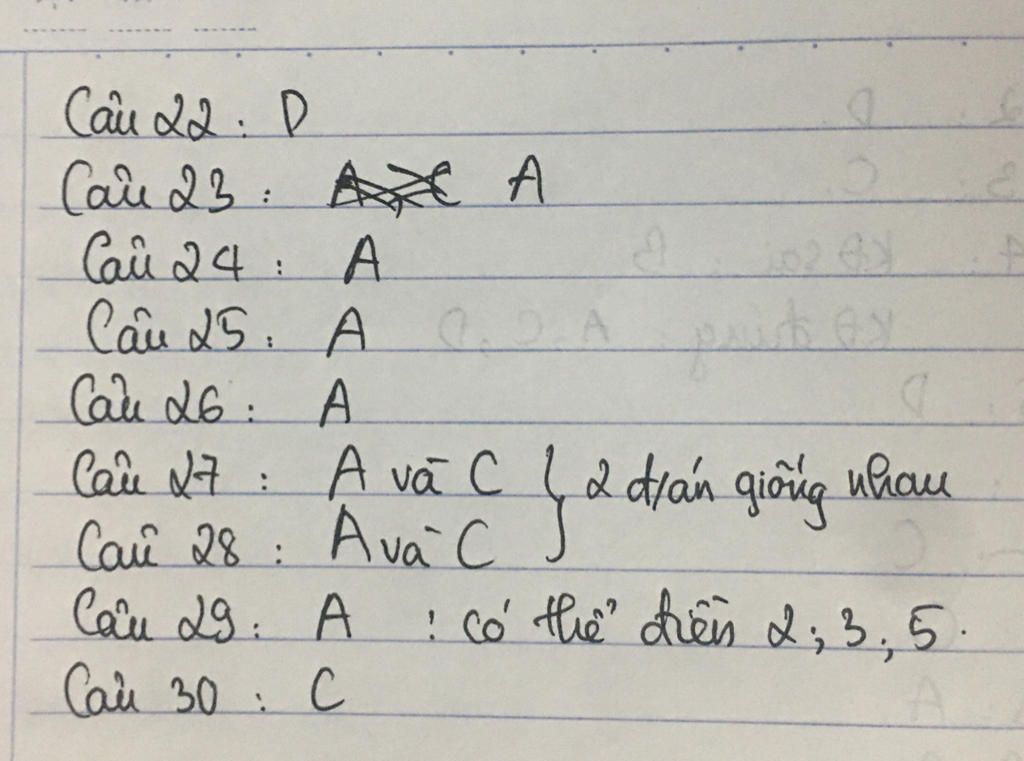 Câu 22 : D
Câu 23 : A
Câu 24 : A
Câu 25 : A
Câu 26 : A
Câu 27 : A và C } 2 đ/án giống nhau
Câu 28 : A và C
Câu 29 : A ! có thể điền 2 ; 3 ; 5.
Câu 30 : C